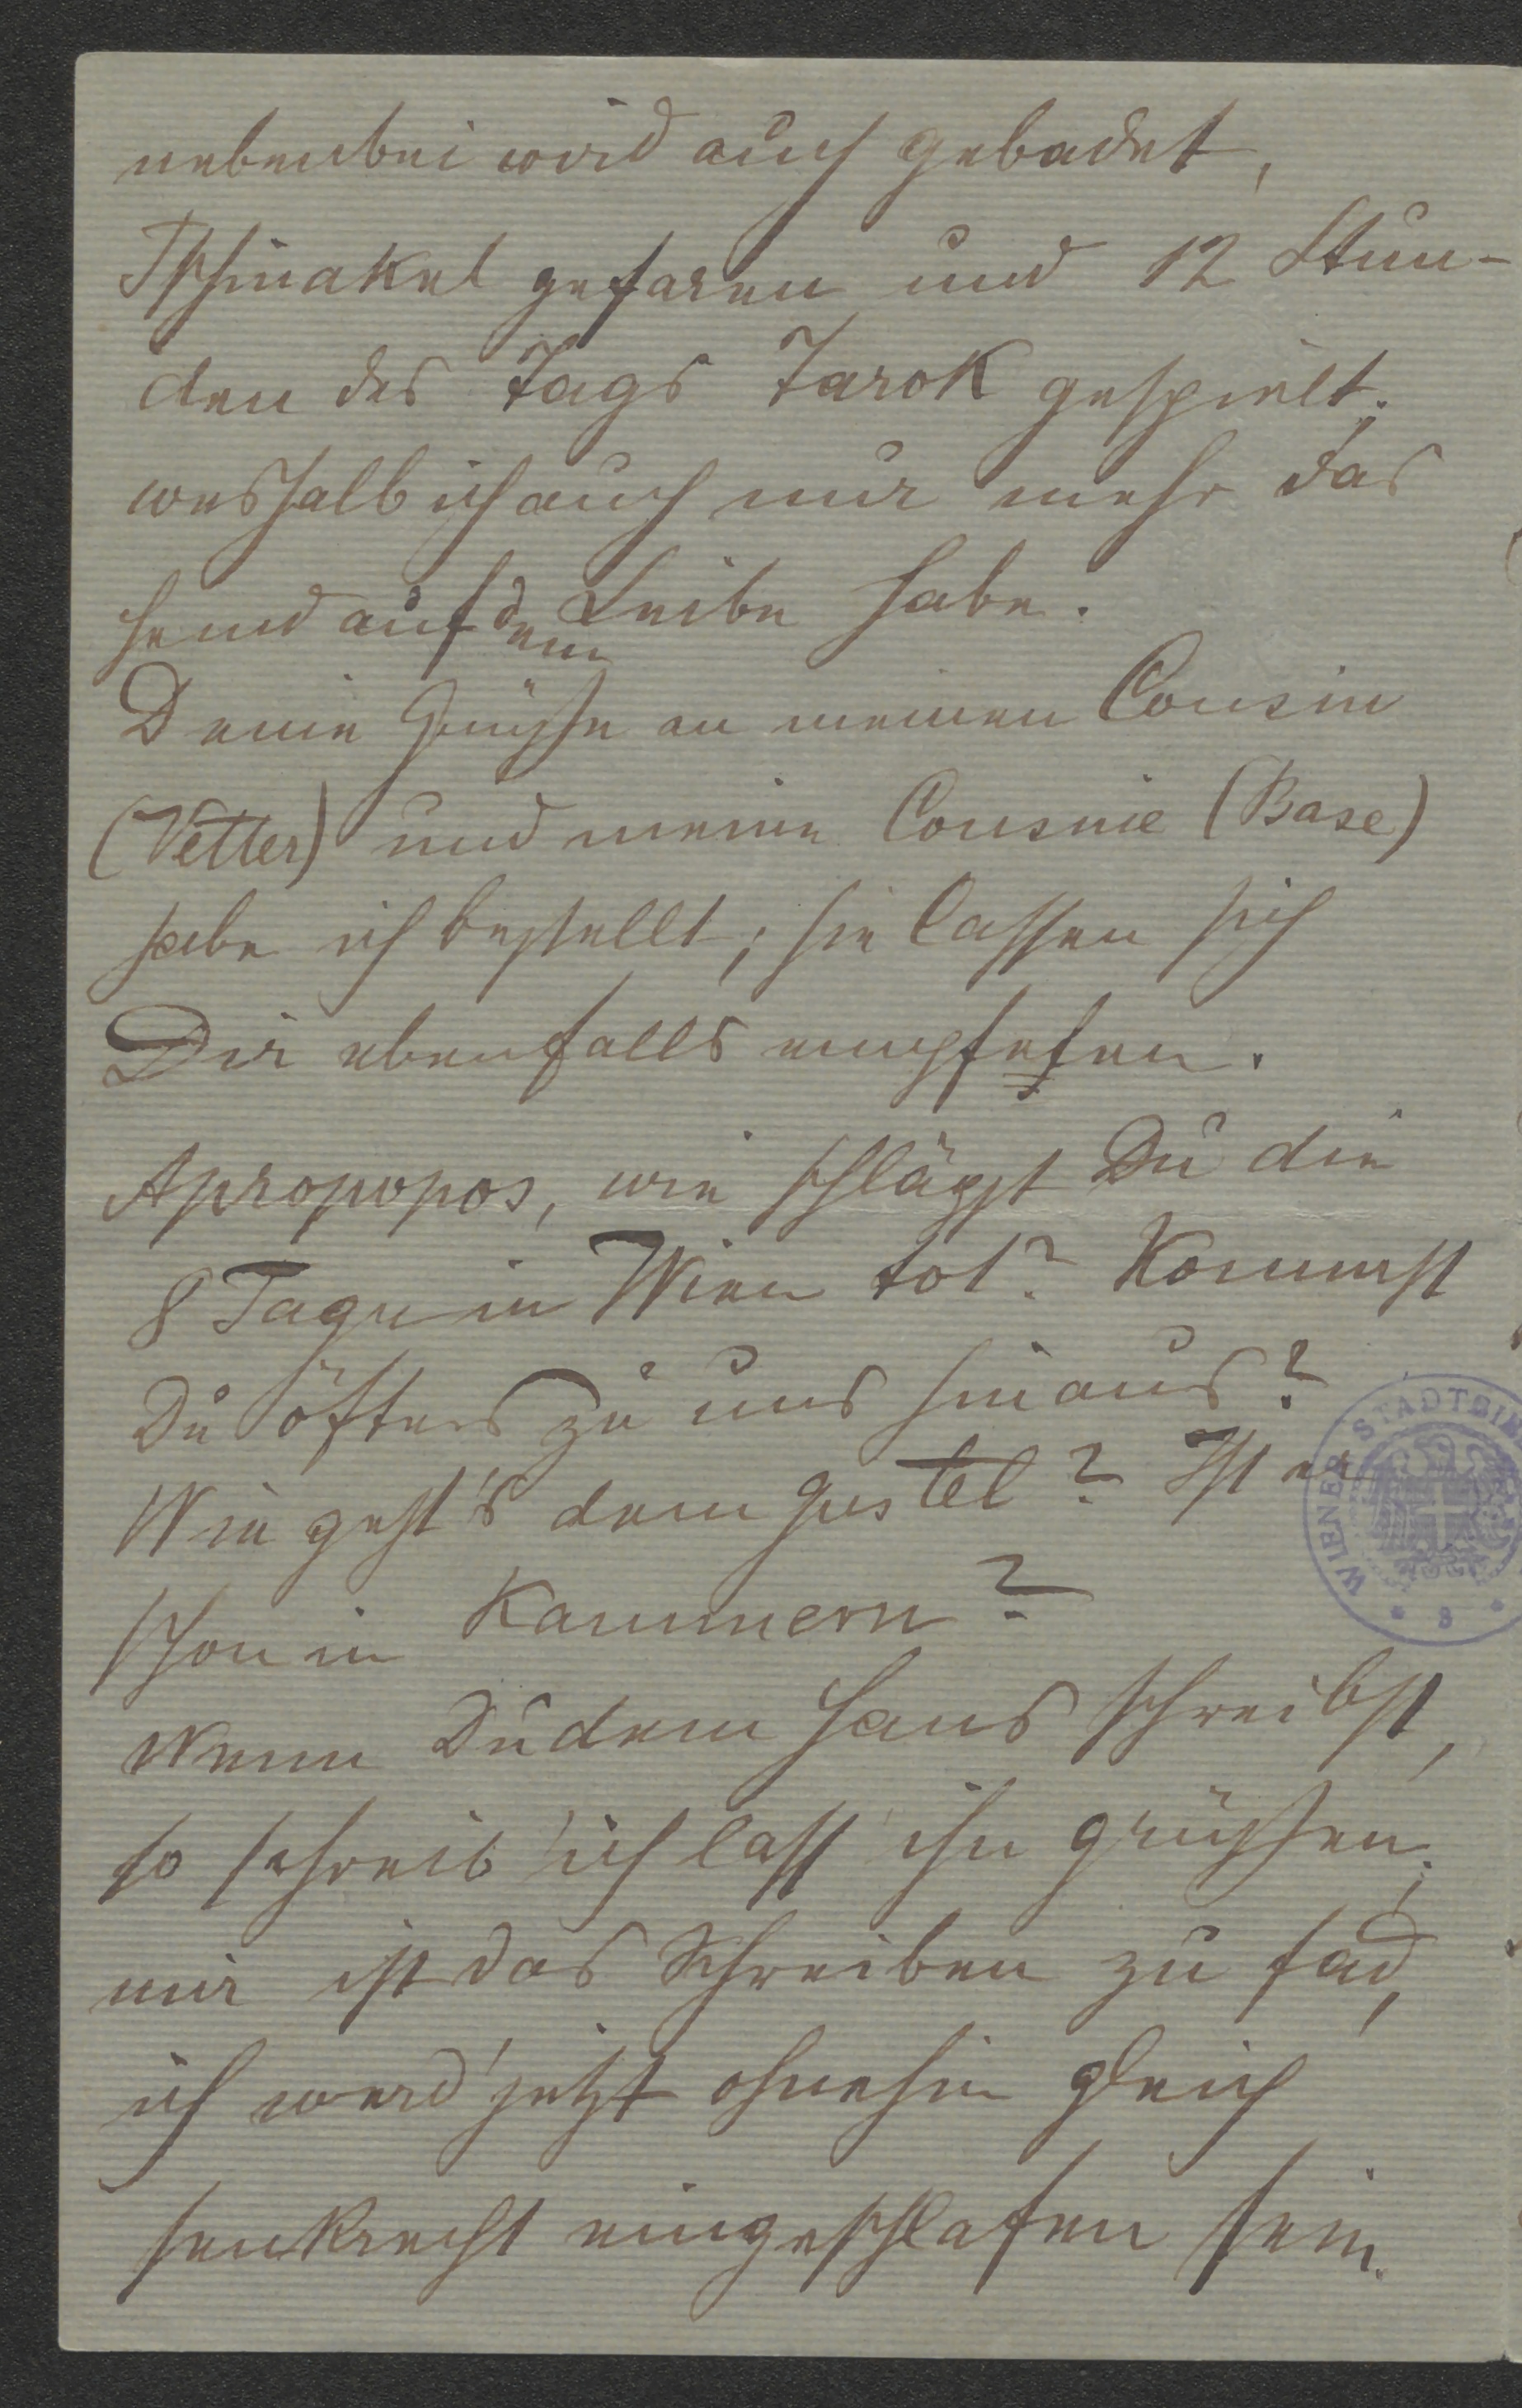 nebenbei wird auch gebadet,
Tschinakel gefaren und 12 Stun-
den des Tags Tarok gespielt;
weshalb ich auch nur mehr das
Hemd auf dem Leibe habe.
Deine Grüsse an meinen Cousin
(Vetter) und meine Cousine (Base)
habe ich bestellt; sie lassen sich
Dir ebenfalls empfehen.
Apropopos, wie schlägst Du die
8 Tage in Wien tot? Kommst
Du öfters zu uns hinaus?
Wie geht's dem Gustel? Ist er
schon in Kammern?
Wenn Du dem Hans schreibst,
so schreib' ich lass' ihn grüssen;
mir ist das Schreiben zu fad,
ich werd' jetzt ohnehin gleich
senkrecht eingeschlafen sein.
WIENER STADTBI
* 8 *